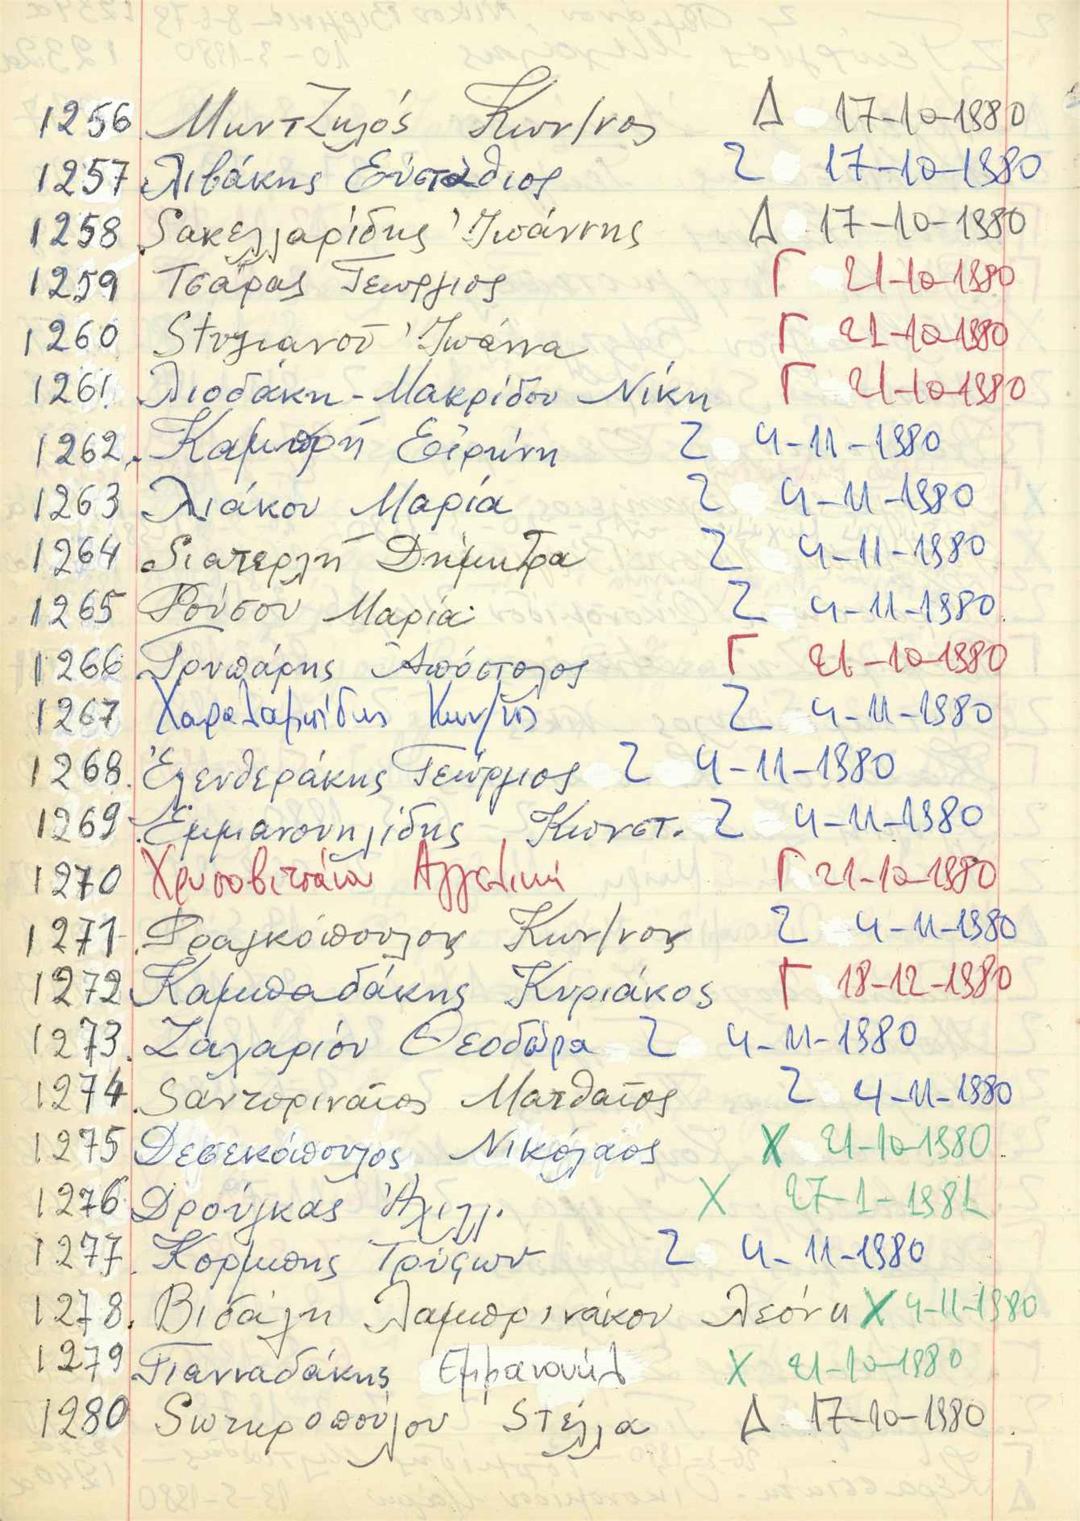 1256 Μιντζηλός Κων/νος Δ 17-10-1980
1257 Λιβάκης Εύστάθιος Ζ 17-10-1980
1258 Σακελλαρίδης Ἰωάννης Δ 17-10-1980
1259 Τσάρας Γεώργιος Γ 21-10-1980
1260 Στυλιανοῦ Ἰωάννα Γ 21-10-1980
1261 Λιοδάκη-Μακρίδου Νίκη Γ 21-10-1980
1262. Καμπρή Εἰρήνη Ζ 4-11-1980
1263 Λιάκου Μαρία Ζ 4-11-1980
1264 Σιατερλῆ Δήμητρα Ζ 4-11-1980
1265 Ρούσου Μαρία Ζ 4-11-1980.
1266 Γρυπάρης Ἀπόστολος Γ 21-10-1980
1267 Χαραλαμπίδης Κων/νος Ζ 4-11-1980
1268. Ἐλευθεράκης Γεώργιος Ζ 4-11-1980
1269 Εμμανουηλίδης Κωνστ. Ζ 4-11-1980
1270 Χρυσοβιτσάνου Αγγελική Γ 21-10-1980
1271 Φραγκόπουλος Κων/νος Ζ 4-11-1980
1272 Καμπαδάκης Κυριάκος Γ 18-12-1980
1273. Ζαχαρίου Θεοδώρα Ζ 4-11-1980
1274. Σαντοριναῖος Ματθαῖος Ζ 4-11-1980
1275 Δεσεκόπουλος Νικόλαος Χ 21-10-1980.
1276 Δρούγκας Ἀχιλλ. Χ 27-1-1981
1277. Κόρμπης Τρύφων Ζ 4-11-1980
1278. Βιδάλη Λαμπρινάκου Λεόνη Χ 4-11-1980
1279 Γιανναδάκης Εμμανουήλ Χ 21-10-1980
1280 Σωτηροπούλου Στέλλα Δ 17-10-1980